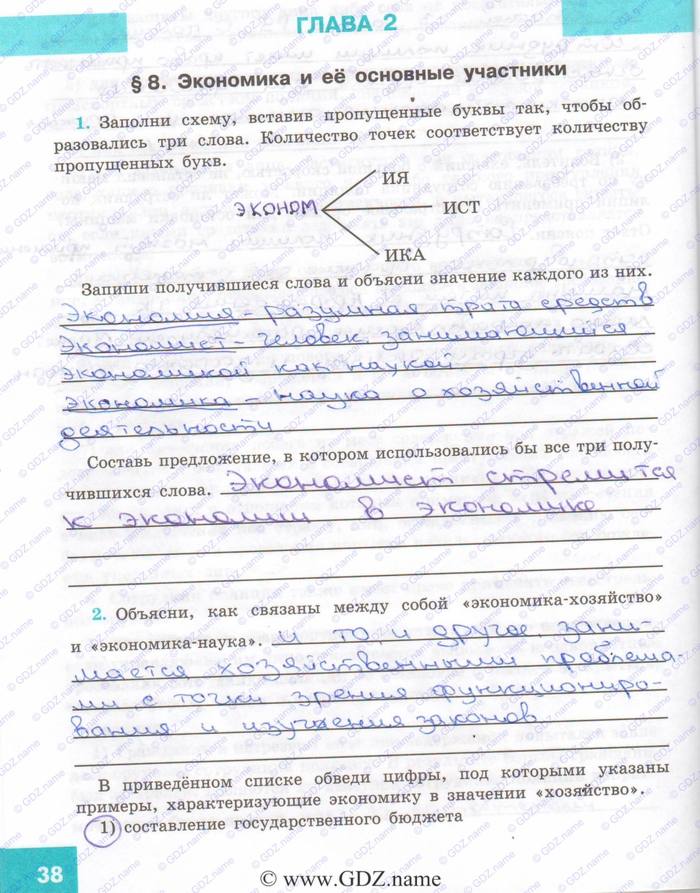 ГЛАВА 2
§ 8. Экономика и её основные участники
1. Заполни схему, вставив пропущенные буквы так, чтобы об-
разовались три слова. Количество точек соответствует количеству
пропущенных букв.
ИЯ
ЭКОНОМ ИСТ
ИКА
Запиши получившиеся слова и объясни значение каждого из них.
Экономия - разумная трата средств
Экономист - человек, занимающийся
экономикой как наукой.
Экономика - наука о хозяйственной
деятельности
Составь предложение, в котором использовались бы все три полу-
чившихся слова. Экономист стремится
к экономии в экономике
2. Объясни, как связаны между собой «экономика-хозяйство»
и «экономика-наука». И то и другое зани-
мается хозяйственными проблема-
ми с точки зрения функциониро-
вания и изучения законов.
В приведённом списке обведи цифры, под которыми указаны
примеры, характеризующие экономику в значении «хозяйство».
1) составление государственного бюджета
38
© www.GDZ.name